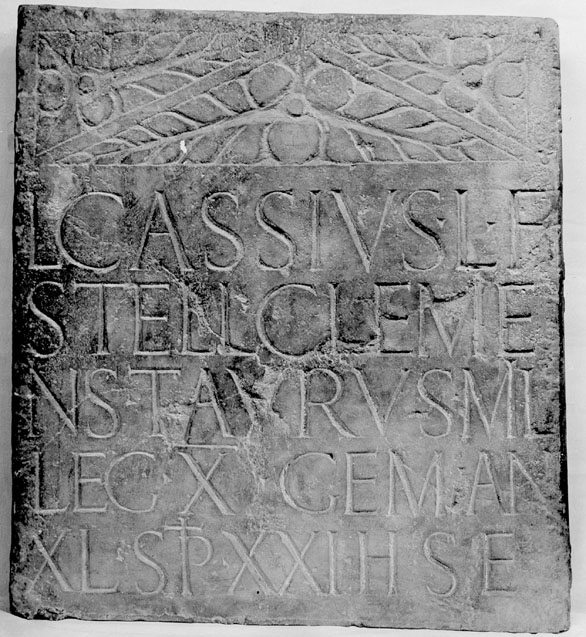 L CASSIVS·L·F
STELL CLEME
NS·TAVRVS MIL
LEG·X GEM·AN
XL·STIP·XXII·H S E